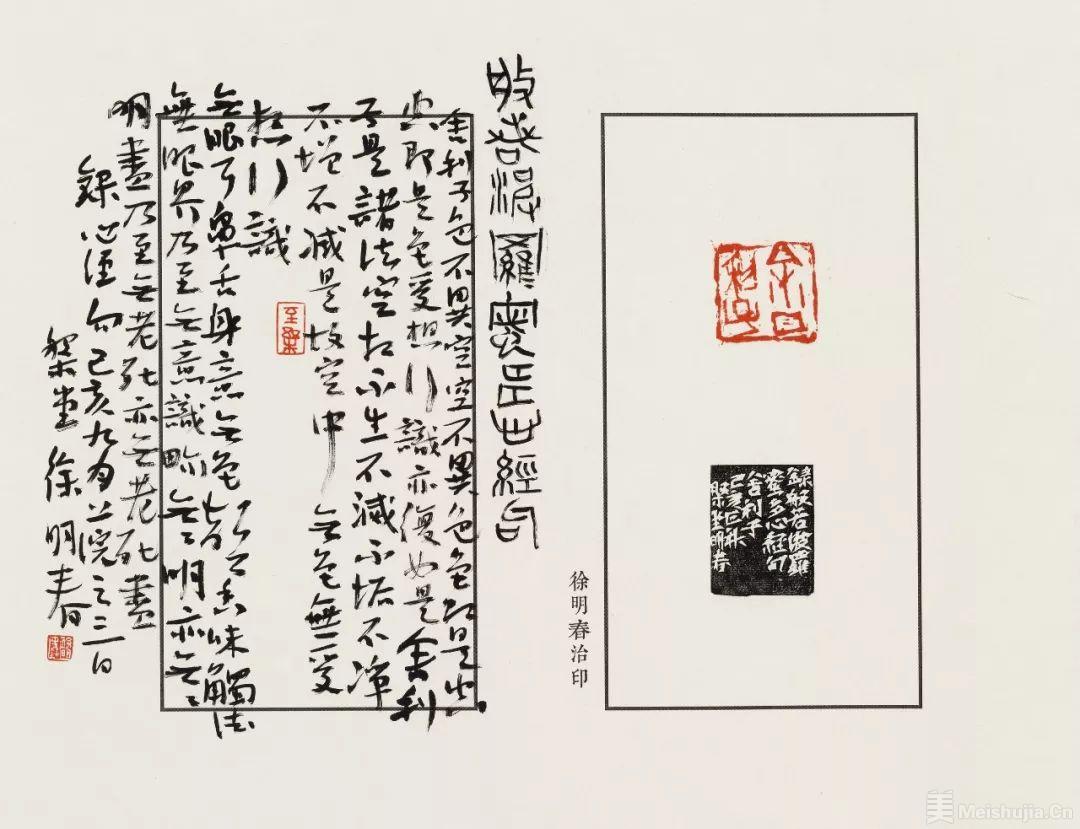 錄般若波羅
蜜多心經句
舍利子
槃堂明春
徐明春治印
般若波羅蜜多心經印
舍利子色不異空空不異色色即是空
空即是色受想行識亦復如是舍利
子是諸法空相不生不滅不垢不淨
不增不減是故空中無色無受
想行識
至樂
無眼耳鼻舌身意無色聲香味觸法
無眼界乃至無意識界無無明亦無無
明盡乃至無老死亦無老死盡
錄心經句己亥九月上浣之三日
槃堂徐明春
美 Meishujia.Cn